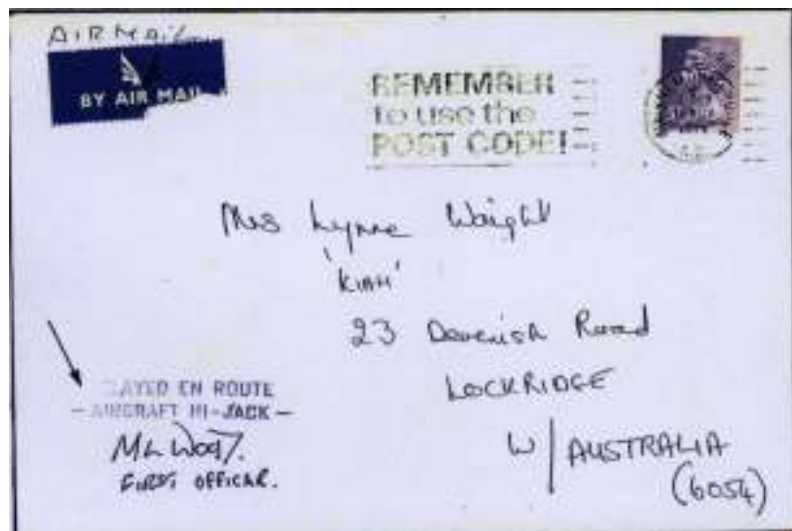 AIRMAIL
BY AIR MAIL
REMEMBER
to use the
POST CODE!
Mrs Lynne Waight
'KIAH'
23 Devenish Road
LOCKRIDGE
W/AUSTRALIA
(6054)
LAYED EN ROUTE
- AIRCRAFT HI-JACK -
FIRST OFFICER.